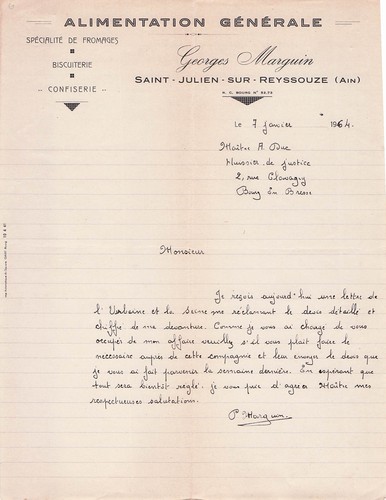 ALIMENTATION GÉNÉRALE
SPÉCIALITÉ DE FROMAGES
BISCUITERIE
- CONFISERIE -
Georges Marguin
SAINT - JULIEN - SUR - REYSSOUZE (AIN)
R. C. BOURG N°
Le 7 janvier 1964.
Maître A. Duc
Huissier de justice
2, rue
Bourg En Bresse
Monsieur
Je reçois aujourd'hui une lettre de
l' Urbaine et la Seine me réclamant le devis détaillé et
chiffré de ma devanture. Comme je vous ai chargé de vous
occuper de mon affaire veuillez s'il vous plait faire le
nécessaire auprès de cette compagnie et leur envoyer le devis que
je vous ai fait parvenir la semaine dernière. En espérant que
tout sera bientôt réglé. je vous prie d'agréer Maître mes
respectueuses salutations.
Marguin